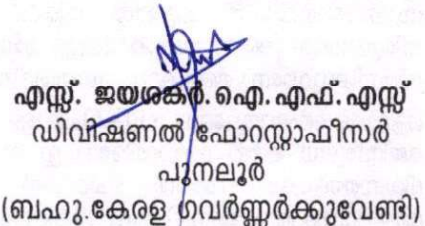 എസ്സ്. ജയശങ്കർ.ഐ.എഫ്.എസ്സ്
ഡിവിഷണൽ ഫോറസ്റ്റാഫീസർ
പുനലൂർ
(ബഹു.കേരള ഗവർണ്ണർക്കുവേണ്ടി)